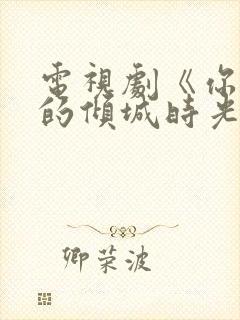 電視劇《你
的傾城時光
卿荣波